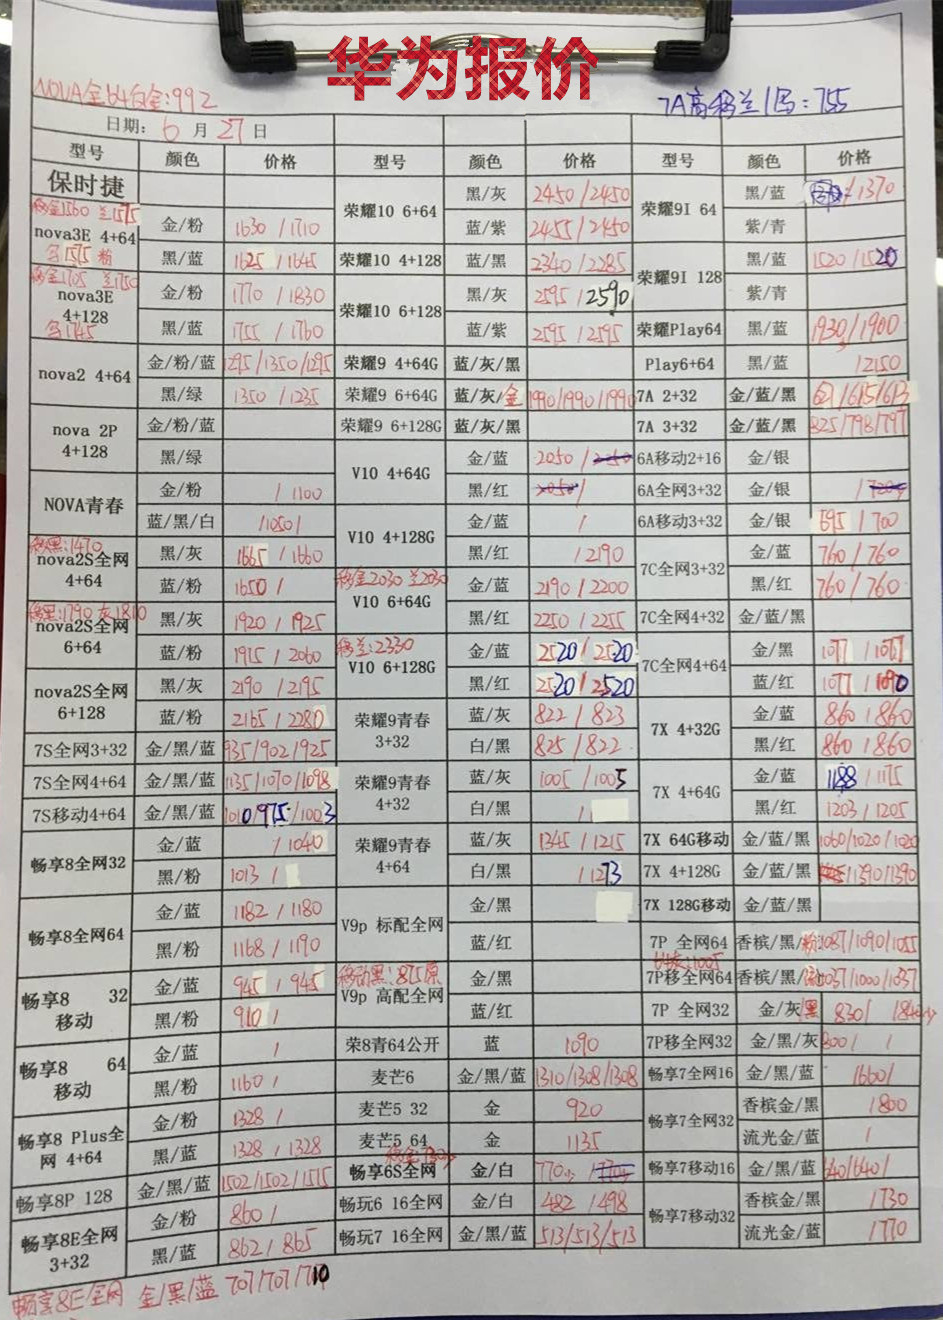 华为报价
NOVA金64白金:992
7A高移兰/马:755
日期: 6 月 27 日
型号 颜色 价格 型号 颜色 价格 型号 颜色 价格
保时捷
荣耀10 6+64 黑/灰 2450/2450
荣耀9I 64 黑/蓝 1370
移金1560 兰1575
nova3E 4+64 金/粉 1630/1710
蓝/紫 2455/2450
紫/青
黑/蓝 1625/1645
荣耀10 4+128 蓝/黑 2340/2285
荣耀9I 128 黑/蓝 1520/1520
移金1705 兰1750
nova3E 4+128 金/粉 1770/1830
荣耀10 6+128 黑/灰 2595/2590
紫/青
黑/蓝 1755/1760
蓝/紫 2595/2595
荣耀Play64 黑/蓝 1930/1900
nova2 4+64 金/粉/蓝 1295/1350/1295
荣耀9 4+64G 蓝/灰/黑
Play6+64 黑/蓝 12150
黑/绿 1350/1235
荣耀9 6+64G 蓝/灰/金 1990/1990/1990
7A 2+32 金/蓝/黑 621/615/613
nova 2P 4+128 金/粉/蓝
荣耀9 6+128G 蓝/灰/黑
7A 3+32 金/蓝/黑 825/798/797
黑/绿
V10 4+64G 金/蓝 2050/
6A移动2+16 金/银
NOVA青春 金/粉 /1100
黑/红 /
6A全网3+32 金/银
蓝/黑/白 /1050/
V10 4+128G 金/蓝 /
6A移动3+32 金/银 695/700
移黑:1470
nova2S全网 4+64 黑/灰 1665/1660
黑/红 /2190
7C全网3+32 金/蓝 760/760
蓝/粉 1650/
移金2030 兰2030
V10 6+64G 金/蓝 2190/2200
黑/红 760/760
移黑:1790 灰1810
nova2S全网 6+64 黑/灰 1920/1925
黑/红 2250/2255
7C全网4+32 金/蓝/黑
蓝/粉 1915/2060
移兰:2330
V10 6+128G 金/蓝 2520/2520
7C全网4+64 金/黑 1077/1067
nova2S全网 6+128 黑/灰 2190/2195
黑/红 2520/2520
蓝/红 1077/1090
蓝/粉 2165/2280
荣耀9青春 3+32 蓝/灰 822/823
7X 4+32G 金/蓝 860/860
7S全网3+32 金/黑/蓝 935/902/925
白/黑 825/822
黑/红 860/860
7S全网4+64 金/黑/蓝 1135/1070/1098
荣耀9青春 4+32 蓝/灰 1005/1005
7X 4+64G 金/蓝 1188/1175
7S移动4+64 金/黑/蓝 1010/975/1003
白/黑 /
黑/红 1203/1205
畅享8全网32 金/蓝 /1040
荣耀9青春 4+64 蓝/灰 1345/1215
7X 64G移动 金/蓝/黑 1060/1020/1020
黑/粉 1013/
白/黑 /1273
7X 4+128G 金/蓝/黑 /1390/1390
畅享8全网64 金/蓝 1182/1180
V9p 标配全网 金/黑
7X 128G移动 金/蓝/黑
黑/粉 1168/1190
蓝/红
7P 全网64 香槟/黑/粉 1087/1090/1055
畅享8 32 移动 金/蓝 945/945
移动黑:875原
V9p 高配全网 金/黑
7P移全网64 香槟/黑/ 1037/1000/1037
黑/粉 910/
蓝/红
7P 全网32 金/灰/黑 830/
畅享8 64 移动 金/蓝 /
荣8青64公开 蓝 1090
7P移全网32 金/黑/灰 800/ /
黑/粉 1160/
麦芒6 金/黑/蓝 1310/1308/1308
畅享7全网16 金/黑/蓝 1660/
畅享8 Plus全网 4+64 金/粉 1328/
麦芒5 32 金 920
畅享7全网32 香槟金/黑 1800
黑/蓝 1328/1328
麦芒5 64 金 1135
流光金/蓝 /
畅享8P 128 金/黑/蓝 1502/1502/1515
畅享6S全网 金/白 770
畅享7移动16 金/黑/蓝 640/640/
畅享8E全网 3+32 金/粉 860/
畅玩6 16全网 金/白 482/498
畅享7移动32 香槟金/黑 1730
黑/蓝 862/865
畅玩7 16全网 金/黑/蓝 513/513/513
流光金/蓝 1770
畅享8E全网 金/黑/蓝 707/707/710